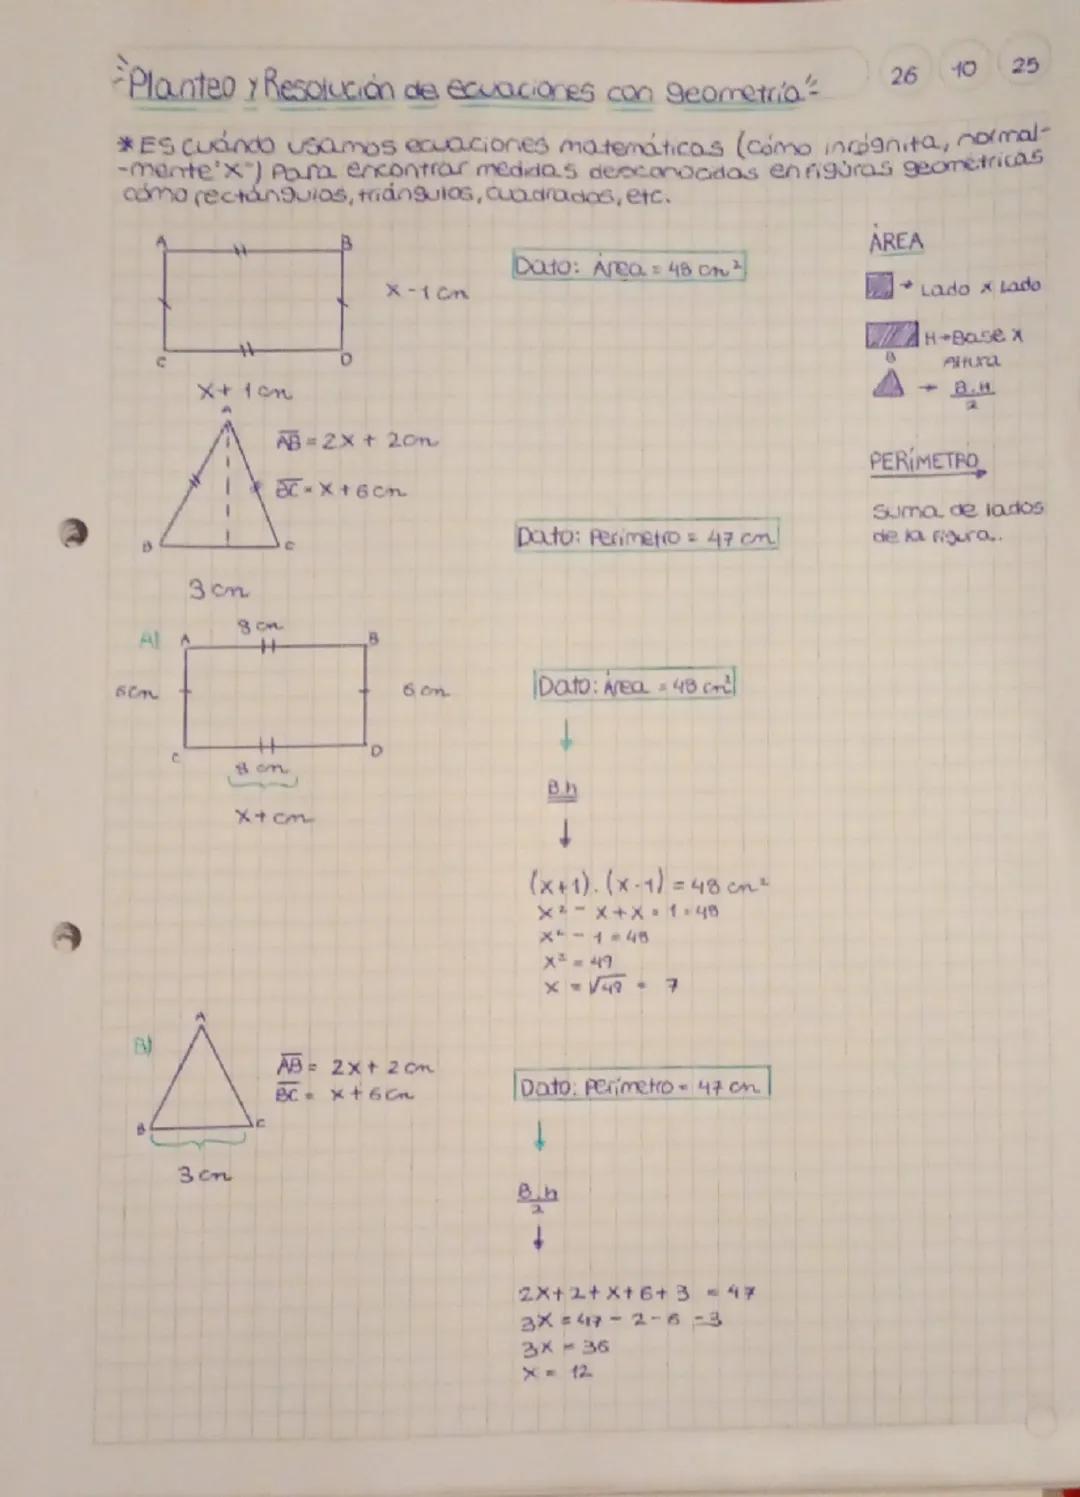 "Planteo y Resolución de ecuaciones con geometría"
26 10 25
*Es cuándo usamos ecuaciones matemáticas (cómo incógnita, normal-
-mente "x") Para encontrar medidas desconocidas en figuras geometricas
cómo rectángulos, triángulos, cuadrados, etc.
A B
C D
x-1 cm
x+1 cm
Dato: Área = 48 cm²
ÁREA
→ Lado x Lado
H→Base x
B Altura
→ B.H
2
PERÍMETRO
Suma de lados
de la figura.
A
B C
AB = 2x + 2cm
BC = x+6cm
3 cm
Dato: Perímetro = 47 cm
A)
8 cm
A B
6cm 6 cm
C D
8 cm
x+cm
Dato: Área = 48 cm²
B.h
(x+1).(x-1) = 48 cm²
x² - x+x - 1 = 48
x² - 1 = 48
x² = 49
x = √49 = 7
B)
A
B C
AB = 2x+2cm
BC = x+6cm
3 cm
Dato: Perímetro = 47 cm
B.h
2
2x+2+x+6+3 = 47
3x = 47-2-6-3
3x = 36
x = 12